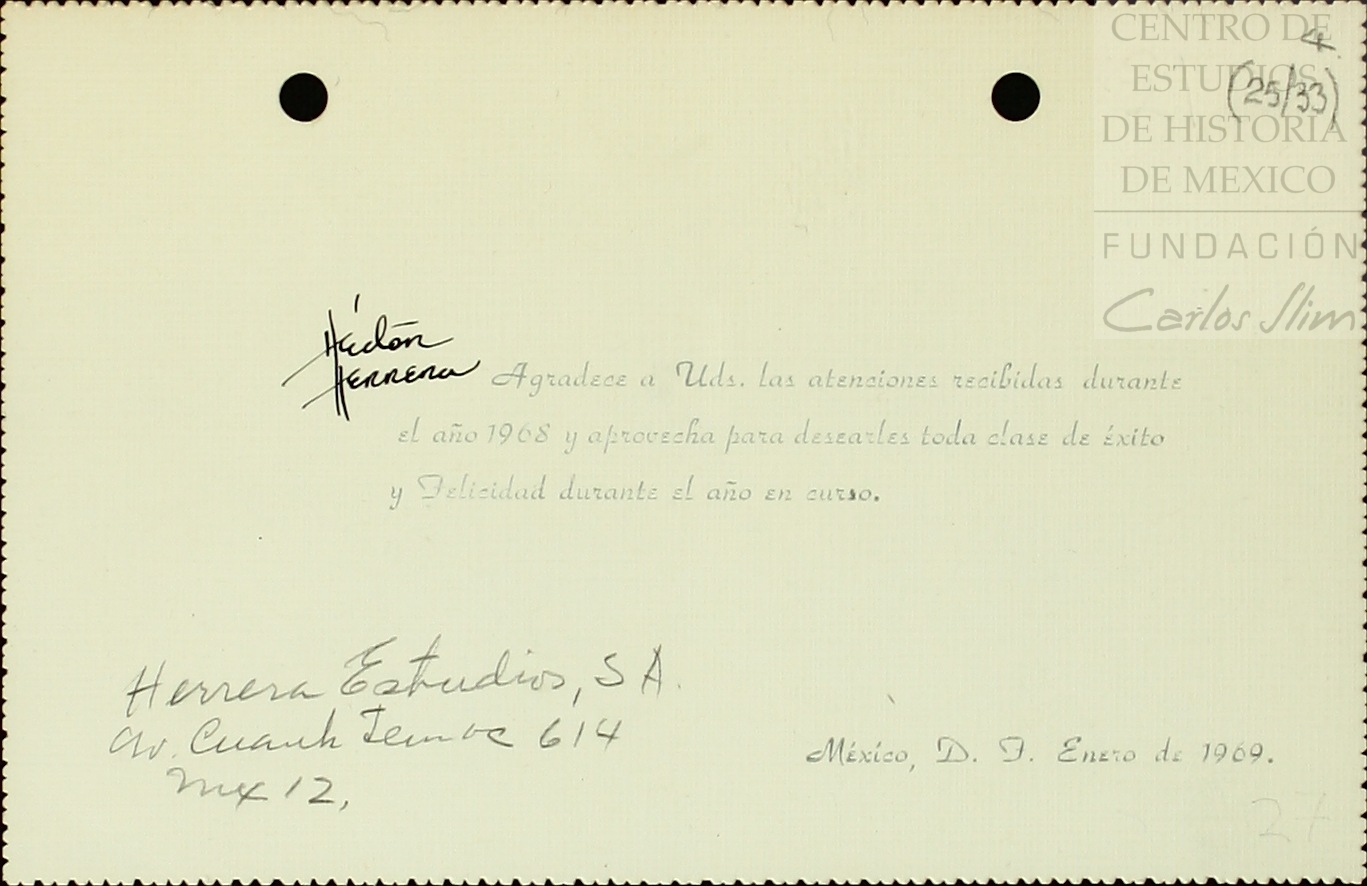 CENTRO DE
ESTUDIOS
DE HISTORIA
DE MEXICO
FUNDACIÓN
Carlos Slim
4
(25/33)
Héctor
Herrera
Agradece a Uds. las atenciones recibidas durante
el año 1968 y aprovecha para desearles toda clase de éxito
y Felicidad durante el año en curso.
Herrera Estudios, S A.
Av. Cuauhtemoc 614
Mex 12,
México, D. F. Enero de 1969.
27